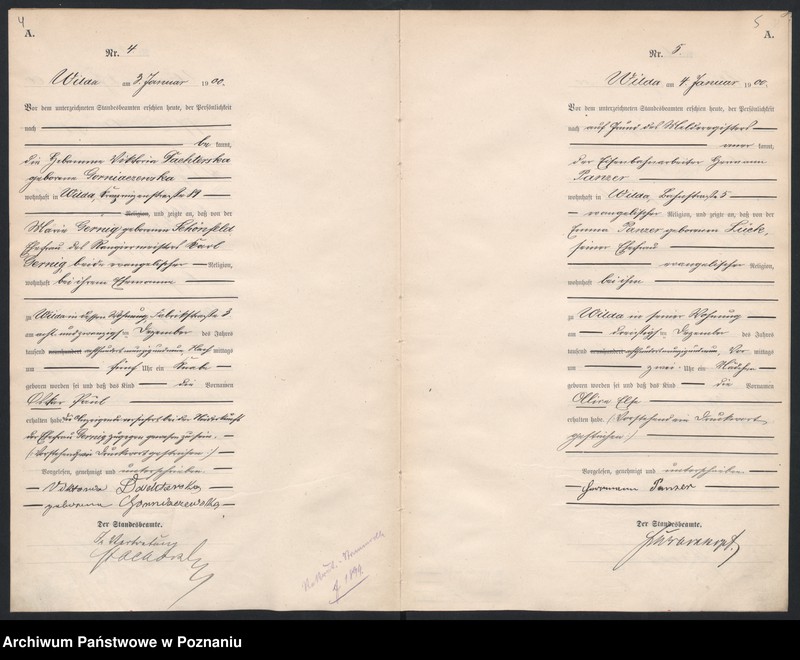 4
A.
Nr. 4
Wilda am 3 Januar 1900.
Vor dem unterzeichneten Standesbeamten erschien heute, der Persönlichkeit
nach
be kannt,
die Hebamme Viktoria
geborene Gorniaczewska
wohnhaft in Wilda,
Religion, und zeigte an, daß von der
Marie Gernig geborenen Schönfeld
Ehefrau des Rangiermeisters Karl
Gernig, beide evangelischer Religion,
wohnhaft bei ihrem Ehemanne
zu Wilda in dessen Wohnung, Fabrikstraße 3
am acht und zwanzigsten Dezember des Jahres
tausend achthundert neunzig und neun, Nach mittags
um fünf Uhr ein Knabe
geboren worden sei und daß das Kind die Vornamen
Oskar Paul
erhalten habe, die Anzeigende versichert bei der Niederkunft
der Ehefrau Gernig zugegen gewesen zu sein.
(Vorstehend ein Druckwort gestrichen)
Vorgelesen, genehmigt und unterschrieben.
Viktoria
geborene Gorniaczewska
Der Standesbeamte.
In Vertretung
5
A.
Nr. 5.
Wilda am 4 Januar 1900.
Vor dem unterzeichneten Standesbeamten erschien heute, der Persönlichkeit
nach auf Grund des Melderegisters
aner kannt,
der Eisenbahnarbeiter Hermann
Panzer
wohnhaft in Wilda, Bahnstraße 5
evangelischer Religion, und zeigte an, daß von der
Emma Panzer geborenen Lück,
seiner Ehefrau
evangelischer Religion,
wohnhaft bei ihm
zu Wilda in seiner Wohnung
am dreißigsten Dezember des Jahres
tausend achthundert neunzig und neun, Vor mittags
um zwei Uhr ein Mädchen
geboren worden sei und daß das Kind die Vornamen
Else
erhalten habe. (Vorstehend ein Druckwort
gestrichen)
Vorgelesen, genehmigt und unterschrieben.
Herrmann Panzer
Der Standesbeamte.
1899
Archiwum Państwowe w Poznaniu